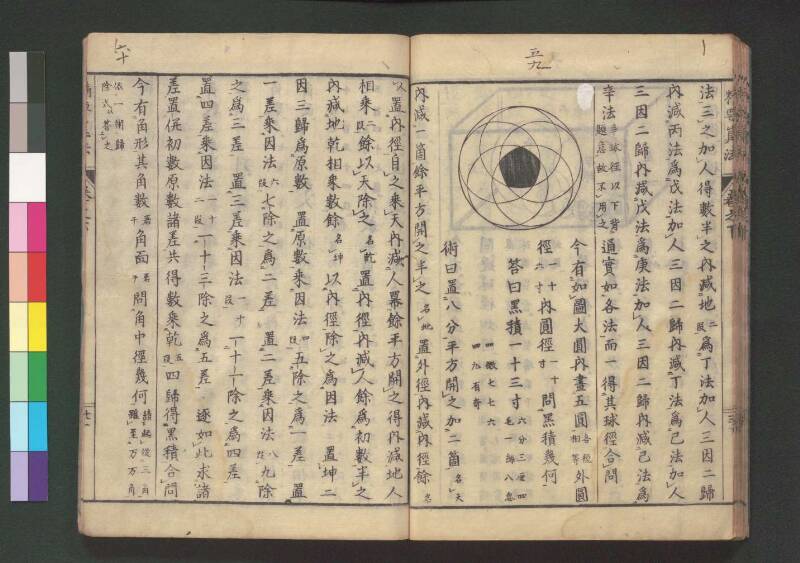 五九
法三之加人得數半之內減地二段爲丁法加人三因二歸
內減丙法爲戊法加人三因二歸內減丁法爲己法加人
三因二歸內減戊法爲庚法加人三因二歸內減己法爲
辛法
通實如各法而一得其球徑合問
今有如圖大圓內畫五圓各徑相等外圓
徑一十六寸內圓徑一十寸問黑積幾何
答曰黑積一十三寸
術曰置八分平方開之加二箇名天
內減一箇餘半方開之半之名地置外徑內減內徑餘名
六十
人置內徑自之乘天內減人冪餘平方開之得內減地人
相乘二段餘以天除之名乾置內徑內減人餘爲初數半之
內減地乾相乘數餘名坤以內徑除之爲因法置坤二
因三歸爲原數置原數乘因法四段五除之爲一差置
一差乘因法六段七除之爲二差置二差乘因法八段九除
之爲三差置三差乘因法一十段一十一除之爲四差
置四差乘因法一十二段一十三除之爲五差逐如此求諸
差置併初數原數諸差共得數乘乾五段四歸得黑積合問
今有角形其角數若干角面若干問角中徑幾何